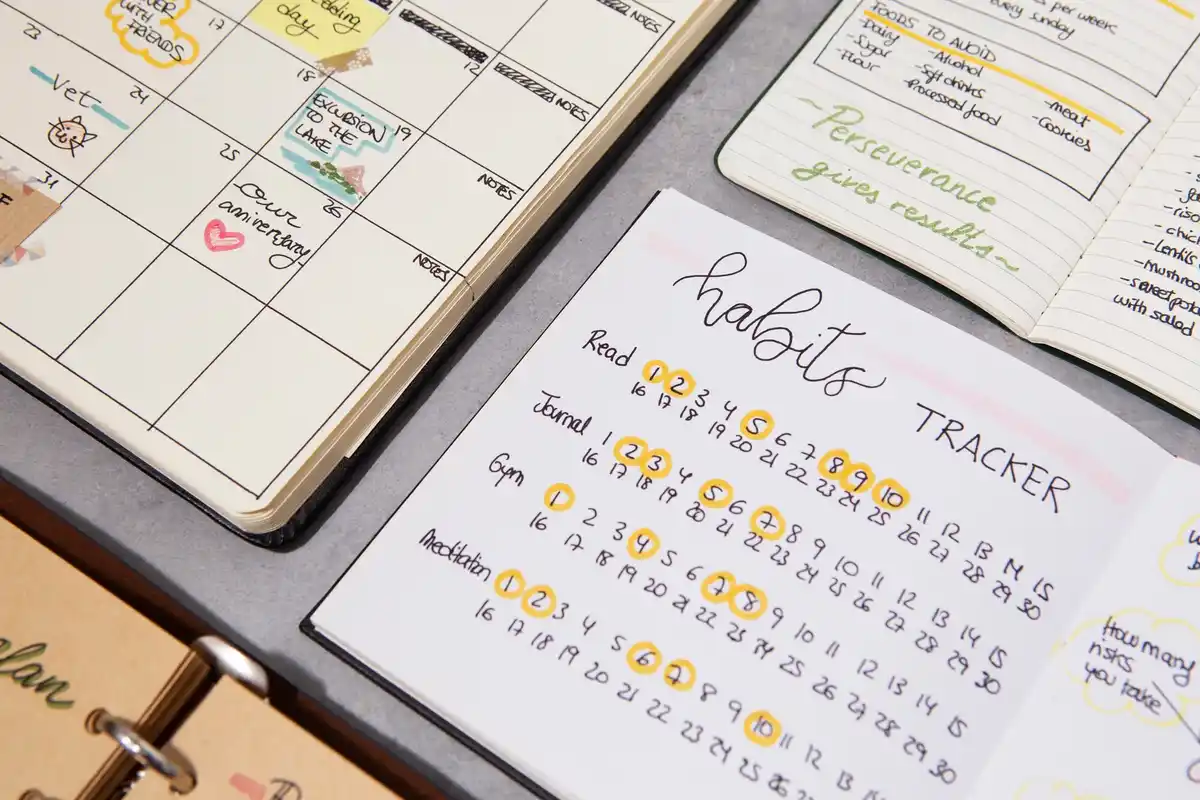 WITH
FRIENDS
17
day
NOTES
23
Vet
24
18
12
NOTES
EXCURSION
TO THE
LAKE
19
NOTES
31
F
25
our
aniversary
26
NOTES
per week
every sunday
FOODS TO AVOID
-Dairy
-Sugar
-Flour
-Alcohol
-Soft drinks
-Processed food
-meat
-Cookies
~Perseverance
gives results~
-Lentils
with salad
habits
TRACKER
Read 1 2 3 4 5 6 7 8 9 10 11 12 13 14 15
16 17 18 19 20 21 22 23 24 25 26 27 28 29 30
Journal 1 2 3 4 5 6 7 8 9 10 11 12 13 14 15
16 17 18 19 20 21 22 23 24 25 26 27 28 29 30
Gym 1 2 3 4 5 6 7 8 9 10 11 12 13 14 15
16 17 18 19 20 21 22 23 24 25 26 27 28 29 30
Meditation 1 2 3 4 5 6 7 8 9 10 11 12 13
16 17 18 19 20 21 22 23 24 25 26
How many
risks
you take
plan